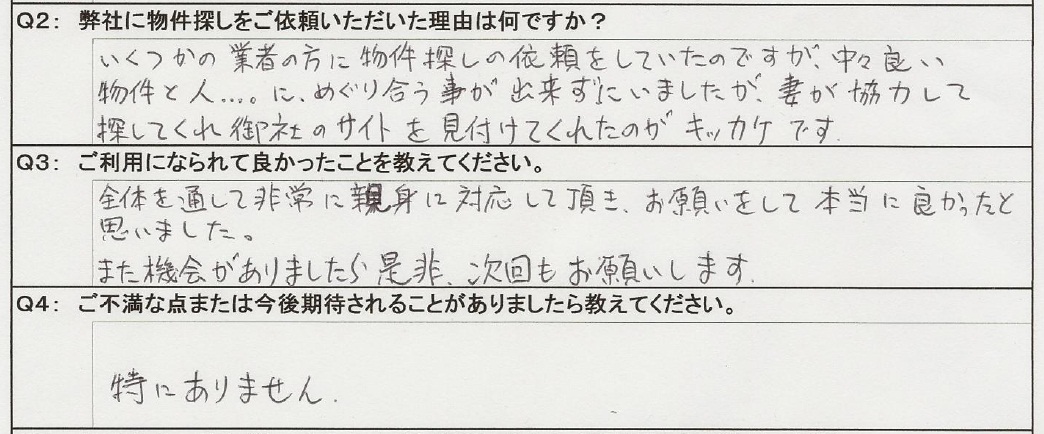 Q2: 弊社に物件探しをご依頼いただいた理由は何ですか？
いくつかの業者の方に物件探しの依頼をしていたのですが、中々良い
物件と人....。に、めぐり合う事が出来ずにいましたが、妻が協力して
探してくれ御社のサイトを見付けてくれたのがキッカケです.
Q3: ご利用になられて良かったことを教えてください。
全体を通して非常に親身に対応して頂き、お願いをして本当に良かったと
思いました。
また機会がありましたら是非、次回もお願いします.
Q4: ご不満な点または今後期待されることがありましたら教えてください。
特にありません.